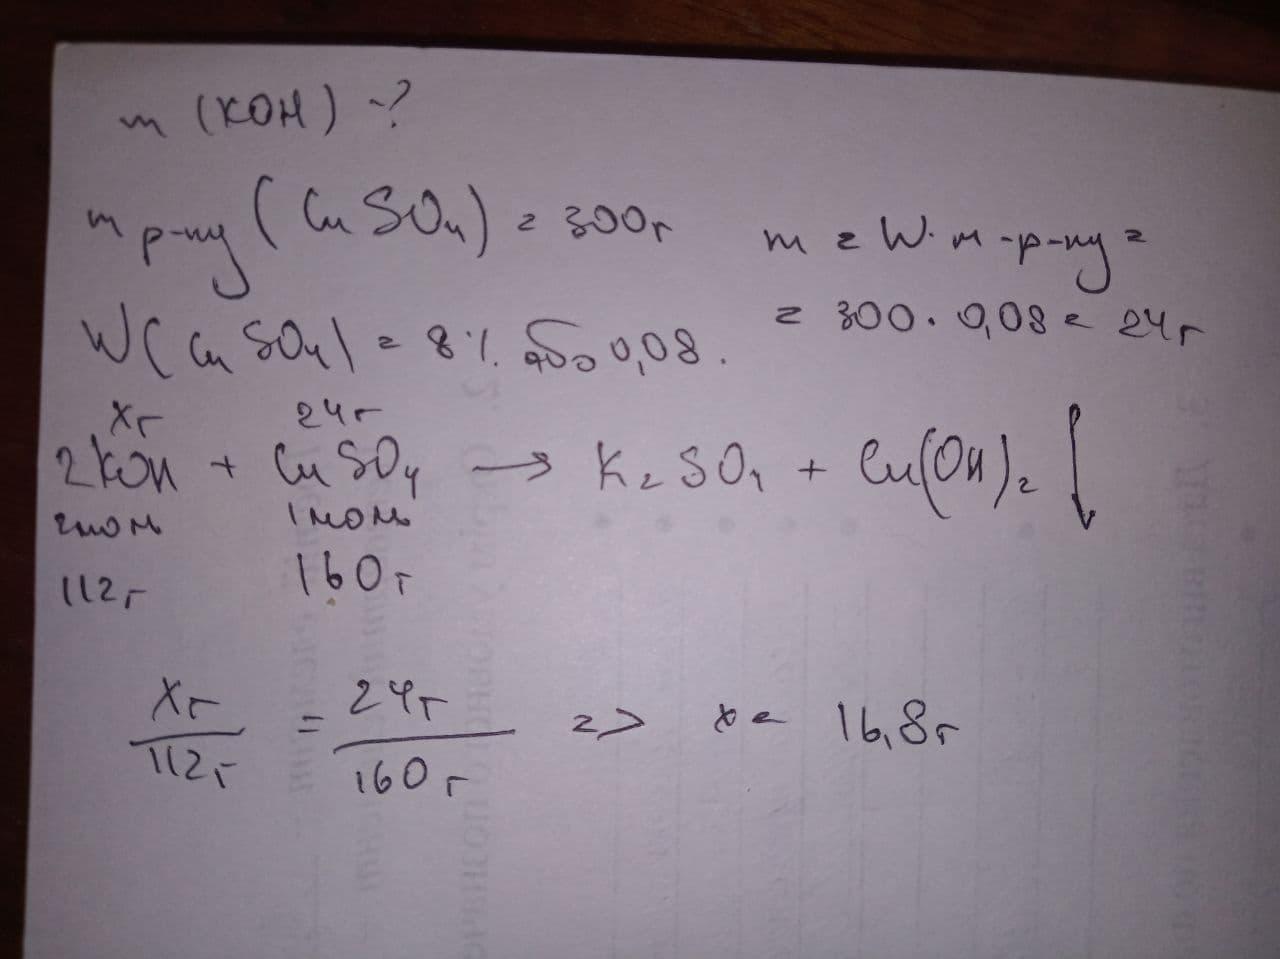 m (KOH) -?
m р-ну (CuSO4) = 300г
W(CuSO4) = 8% або 0,08.
m = W · m - р-ну =
= 300 · 0,08 = 24г
xг 24г
2KOH + CuSO4 → K2SO4 + Cu(OH)2 ↓
2моль 1моль
112г 160г
xг/112г = 24г/160г => x = 16,8г